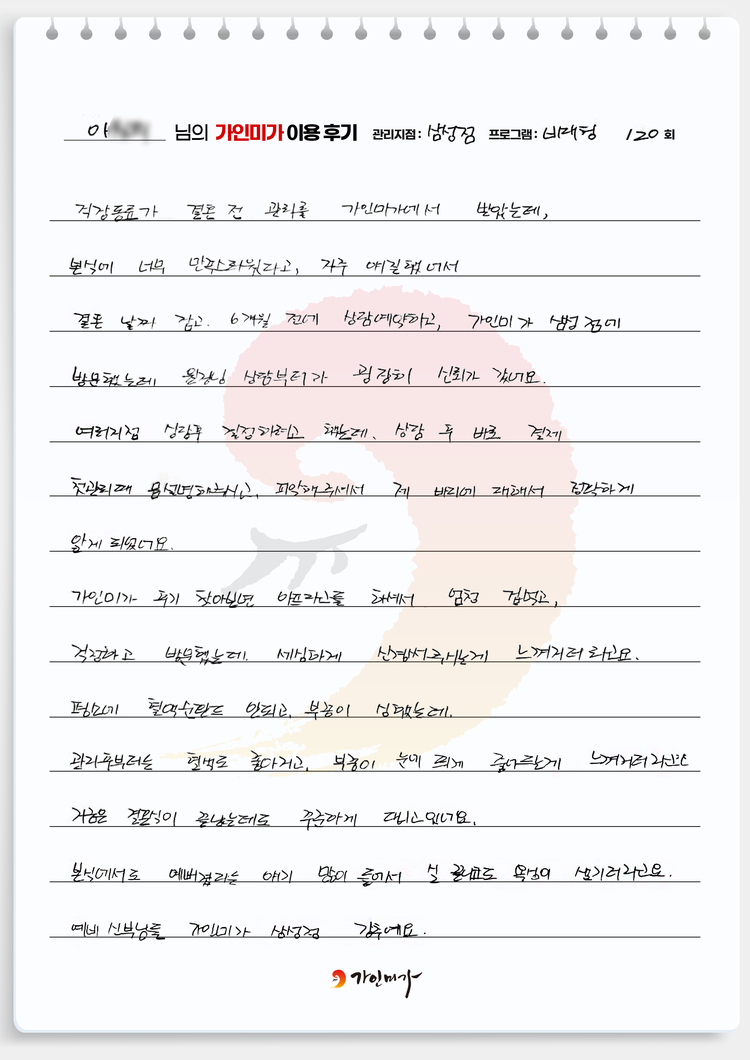 이 님의 가인미가 이용 후기 관리지점: 삼성점 프로그램: 비대칭 120 회
직장동료가 결혼 전 관리를 가인미가에서 받았는데,
본식에 너무 만족스러웠다고, 자주 얘길했어서
결혼 날짜 잡고. 6개월 전에 상담예약하고, 가인미가 삼성점에
방문했는데 원장님 상담부터가 굉장히 신뢰가 갔어요.
여러지점 상담후 결정하려고 했는데. 상담 후 바로 결제
첫관리때 파악해주셔서 제 바디에 대해서 정확하게
알게 되었어요.
가인미가 후기 찾아보면 아프다는 하셔서 엄청 겁먹고,
걱정하고 방문했는데. 세심하게 신경써주시는게 느껴지더라고요.
평소에 혈액순환도 안되고, 부종이 심했는데.
관리후부터는 혈색도 좋아지고, 부종이 눈에 띄게 줄어드는게 느껴지더라고요
지금은 결혼식이 끝났는데도 꾸준하게 다니고있어요.
본식에서도 예뻐졌다는 얘기 많이 들어서 살 욕심이 생기더라고요.
예비 신부님들 가인미가 삼성점 강추에요.
가인미가